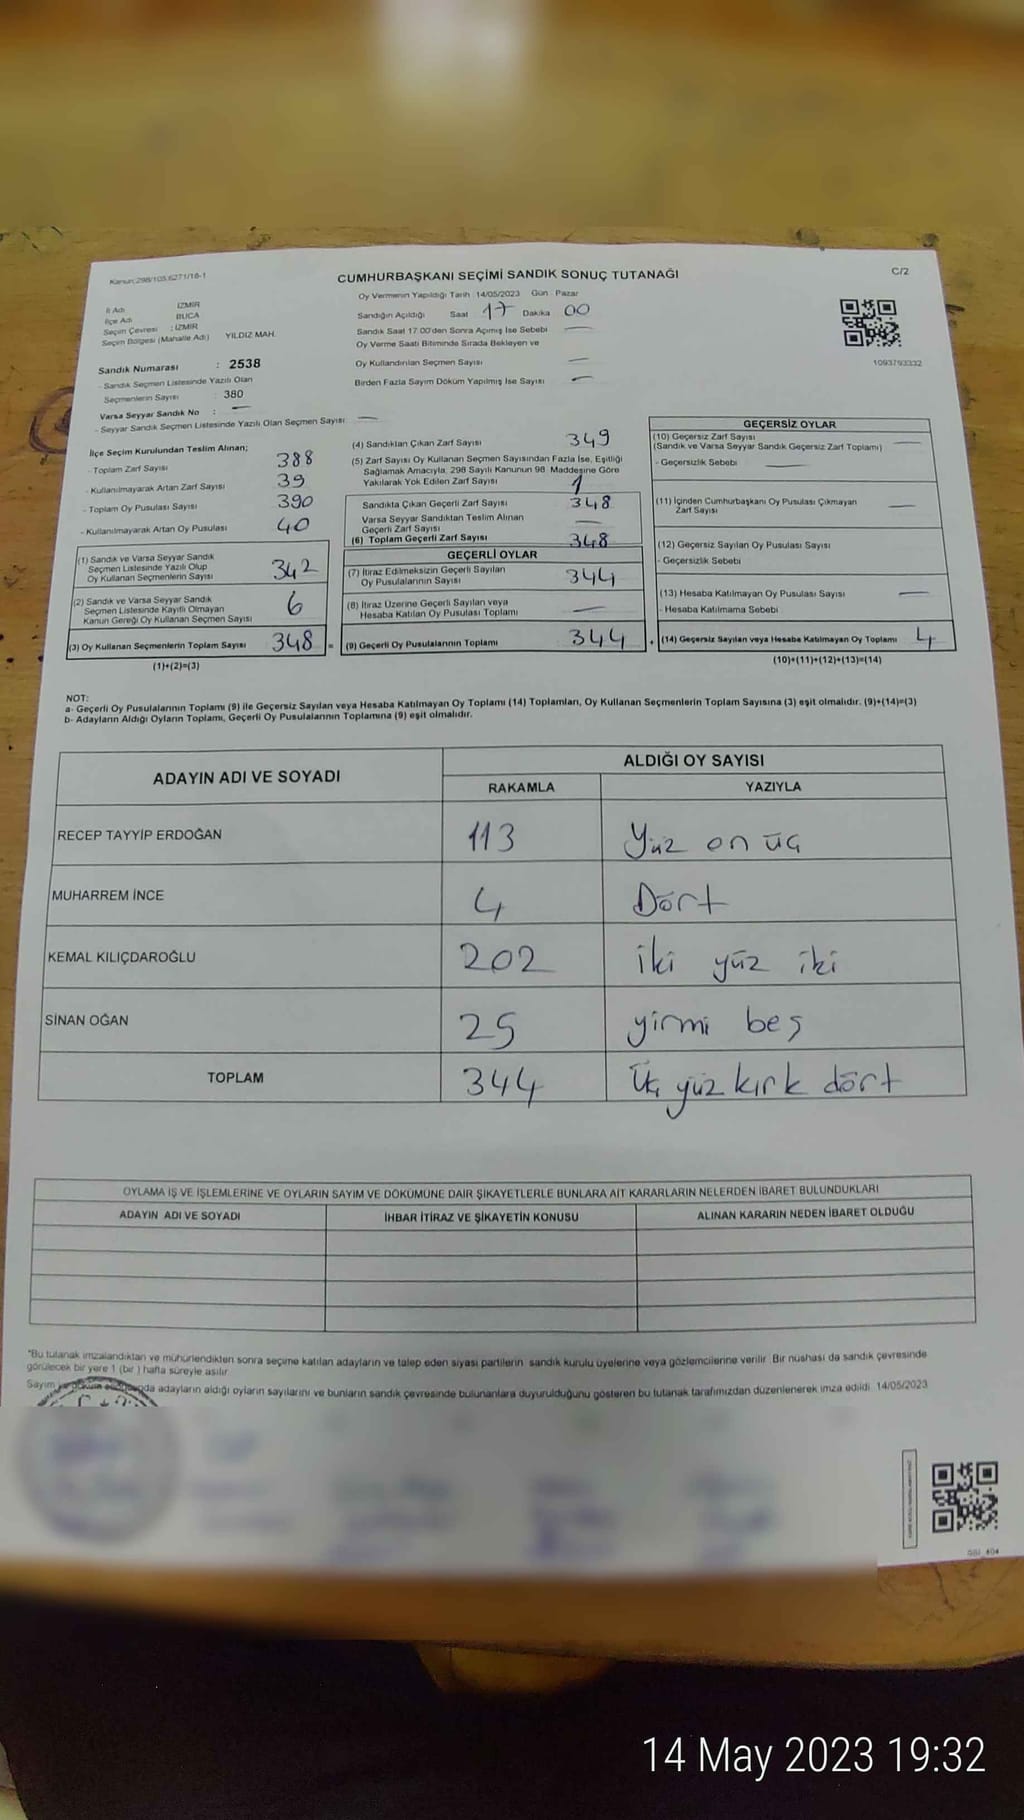 Kanun:298/105,6271/16-1
CUMHURBAŞKANI SEÇİMİ SANDIK SONUÇ TUTANAĞI
C/2
Oy Vermenin Yapıldığı Tarih :14/05/2023 Gün : Pazar
İl Adı : İZMİR
İlçe Adı : BUCA
Seçim Çevresi : İZMİR
Seçim Bölgesi (Mahalle Adı) YILDIZ MAH.
Sandığın Açıldığı Saat 17 Dakika 00
Sandık Saat 17.00'den Sonra Açımış İse Sebebi —
Oy Verme Saati Bitiminde Sırada Bekleyen ve
Oy Kullandırılan Seçmen Sayısı —
Birden Fazla Sayım Döküm Yapılmış İse Sayısı —
1093793332
Sandık Numarası : 2538
- Sandık Seçmen Listesinde Yazılı Olan
Seçmenlerin Sayısı : 380
Varsa Seyyar Sandık No : —
- Seyyar Sandık Seçmen Listesinde Yazılı Olan Seçmen Sayısı : —
İlçe Seçim Kurulundan Teslim Alınan;
- Toplam Zarf Sayısı 388
- Kullanılmayarak Artan Zarf Sayısı 39
- Toplam Oy Pusulası Sayısı 390
- Kullanılmayarak Artan Oy Pusulası 40
(1) Sandık ve Varsa Seyyar Sandık
Seçmen Listesinde Yazılı Olup
Oy Kullanan Seçmenlerin Sayısı 342
(2) Sandık ve Varsa Seyyar Sandık
Seçmen Listesinde Kayıtlı Olmayan
Kanun Gereği Oy Kullanan Seçmen Sayısı 6
(3) Oy Kullanan Seçmenlerin Toplam Sayısı 348 =
(1)+(2)=(3)
(4) Sandıktan Çıkan Zarf Sayısı 349
(5) Zarf Sayısı Oy Kullanan Seçmen Sayısından Fazla İse, Eşitliği
Sağlamak Amacıyla, 298 Sayılı Kanunun 98. Maddesine Göre
Yakılarak Yok Edilen Zarf Sayısı 1
Sandıkta Çıkan Geçerli Zarf Sayısı 348
Varsa Seyyar Sandıktan Teslim Alınan
Geçerli Zarf Sayısı —
(6) Toplam Geçerli Zarf Sayısı 348
GEÇERLİ OYLAR
(7) İtiraz Edilmeksizin Geçerli Sayılan
Oy Pusulalarının Sayısı 344
(8) İtiraz Üzerine Geçerli Sayılan veya
Hesaba Katılan Oy Pusulası Toplamı —
(9) Geçerli Oy Pusulalarının Toplamı 344 +
GEÇERSİZ OYLAR
(10) Geçersiz Zarf Sayısı —
(Sandık ve Varsa Seyyar Sandık Geçersiz Zarf Toplamı)
- Geçersizlik Sebebi —
(11) İçinden Cumhurbaşkanı Oy Pusulası Çıkmayan
Zarf Sayısı —
(12) Geçersiz Sayılan Oy Pusulası Sayısı
- Geçersizlik Sebebi
(13) Hesaba Katılmayan Oy Pusulası Sayısı —
- Hesaba Katılmama Sebebi
(14) Geçersiz Sayılan veya Hesaba Katılmayan Oy Toplamı 4
(10)+(11)+(12)+(13)=(14)
NOT:
a- Geçerli Oy Pusulalarının Toplamı (9) ile Geçersiz Sayılan veya Hesaba Katılmayan Oy Toplamı (14) Toplamları, Oy Kullanan Seçmenlerin Toplam Sayısına (3) eşit olmalıdır. (9)+(14)=(3)
b- Adayların Aldığı Oyların Toplamı, Geçerli Oy Pusulalarının Toplamına (9) eşit olmalıdır.
ADAYIN ADI VE SOYADI
ALDIĞI OY SAYISI
RAKAMLA YAZIYLA
RECEP TAYYİP ERDOĞAN 113 Yüz on üç
MUHARREM İNCE 4 Dört
KEMAL KILIÇDAROĞLU 202 iki yüz iki
SİNAN OĞAN 25 yirmi beş
TOPLAM 344 Üç yüz kırk dört
OYLAMA İŞ VE İŞLEMLERİNE VE OYLARIN SAYIM VE DÖKÜMÜNE DAİR ŞİKAYETLERLE BUNLARA AİT KARARLARIN NELERDEN İBARET BULUNDUKLARI
ADAYIN ADI VE SOYADI İHBAR İTİRAZ VE ŞİKAYETİN KONUSU ALINAN KARARIN NEDEN İBARET OLDUĞU
*Bu tutanak imzalandıktan ve mühürlendikten sonra seçime katılan adayların ve talep eden siyasi partilerin sandık kurulu üyelerine veya gözlemcilerine verilir. Bir nüshası da sandık çevresinde
görülecek bir yere 1 (bir ) hafta süreyle asılır.
Sayım adayların aldığı oyların sayılarını ve bunların sandık çevresinde bulunanlara duyurulduğunu gösteren bu tutanak tarafımızdan düzenlenerek imza edildi. 14/05/2023
14 May 2023 19:32